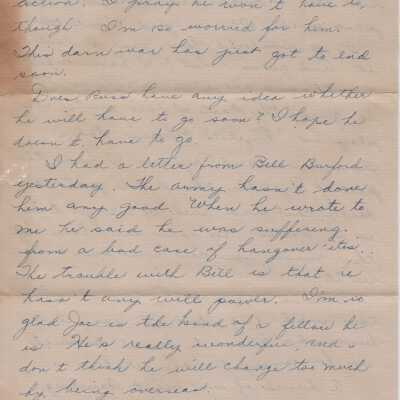 action. I pray he won't have to,
though. I'm so worried for him.
This darn war has just got to end
soon.
Does Russ have any idea whether
he will have to go soon? I hope he
doesn't have to go.
I had a letter from Bill Burford
yesterday. The army hasn't done
him any good. When he wrote to
me he said he was suffering
from a bad case of hangover 'itis'..
The trouble with Bill is that he
hasn't any will power. I'm so
glad Joe is the kind of a fellow he
is. He's really wonderful and I
don't think he will change too much
by being overseas.